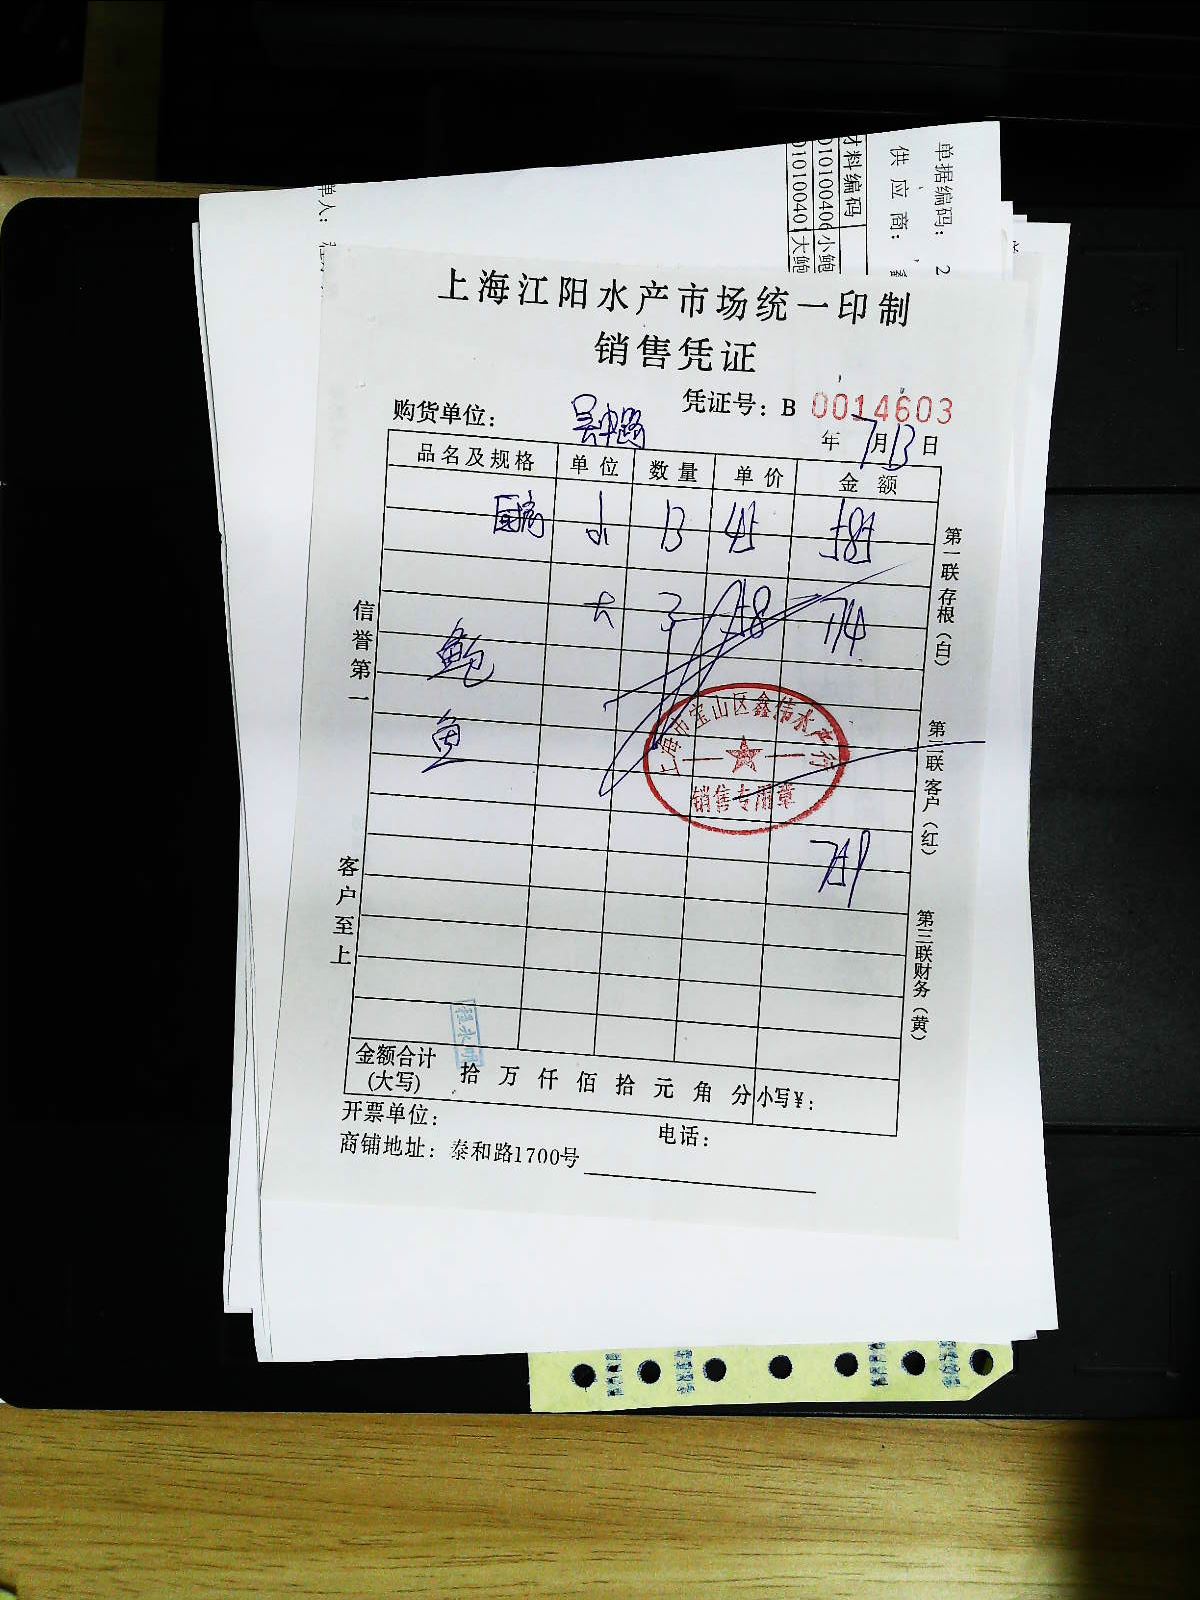 单据编码: 2
供应商:
材料编码
010100406 小鲍
01010040 大鲍
单人:
上海江阳水产市场统一印制
销售凭证
凭证号: B 0014603
购货单位: 吴中路
年 7月13日
品名及规格 单位 数量 单价 金额
小 13 45 585
大 3 58 174
鲍
鱼
上海市宝山区鑫伟水产行
销售专用章
759
信誉第一
客户至上
第一联 存根(白)
第二联 客户(红)
第三联 财务(黄)
金额合计
(大写)
拾 万 仟 佰 拾 元 角 分 小写¥:
开票单位:
电话:
商铺地址: 泰和路1700号